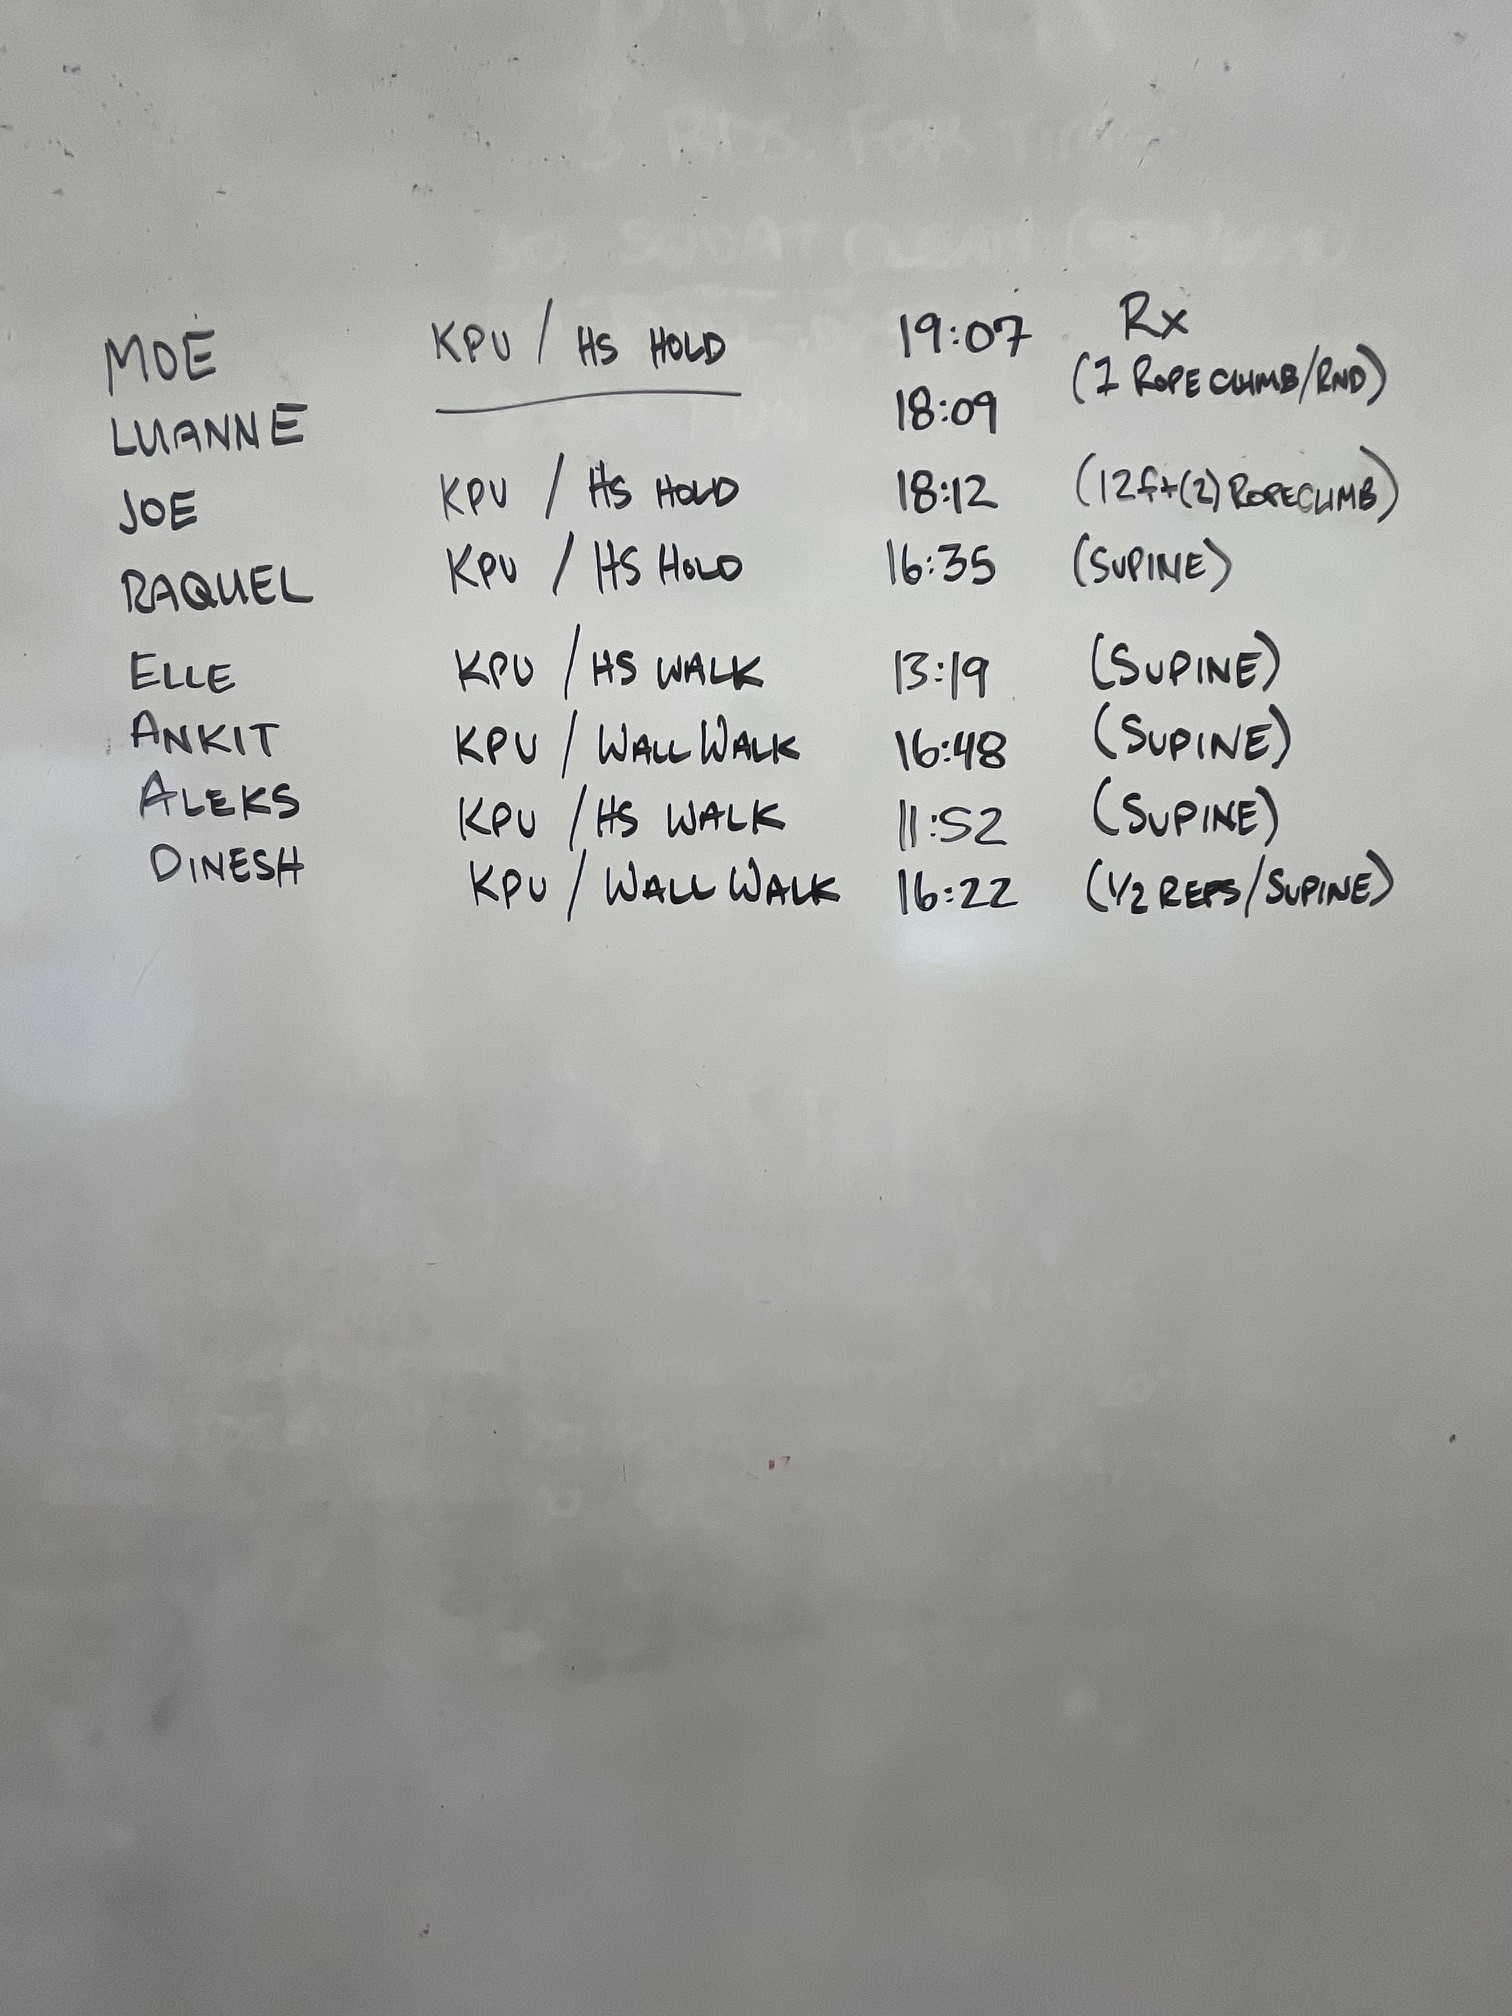 3 RDS FOR TIME
SQUAT CLEAN
MOE KPU / HS HOLD 19:07 Rx
LUANNE 18:09 (1 ROPE CLIMB/RND)
JOE KPU / HS HOLD 18:12 (12ft (2) ROPE CLIMB)
RAQUEL KPU / HS HOLD 16:35 (SUPINE)
ELLE KPU / HS WALK 13:19 (SUPINE)
ANKIT KPU / WALL WALK 16:48 (SUPINE)
ALEKS KPU / HS WALK 11:52 (SUPINE)
DINESH KPU / WALL WALK 16:22 (1/2 REPS/SUPINE)